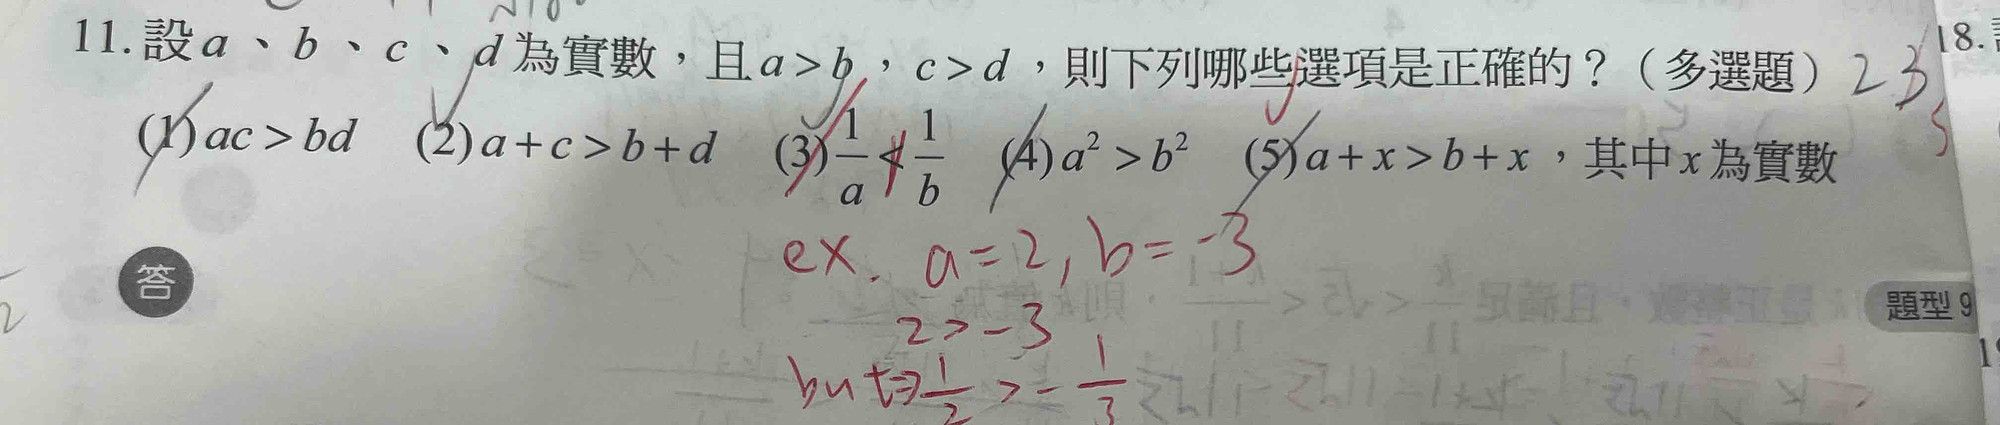 11. 設 a、b、c、d 為實數，且 a > b，c > d，則下列哪些選項是正確的？（多選題） 2 3
18.
5
(1) ac > bd (2) a + c > b + d (3) 1/a < 1/b (4) a² > b² (5) a + x > b + x，其中 x 為實數
ex. a = 2, b = -3
答
題型 9
2 > -3
but ⇒ 1/2 > -1/3